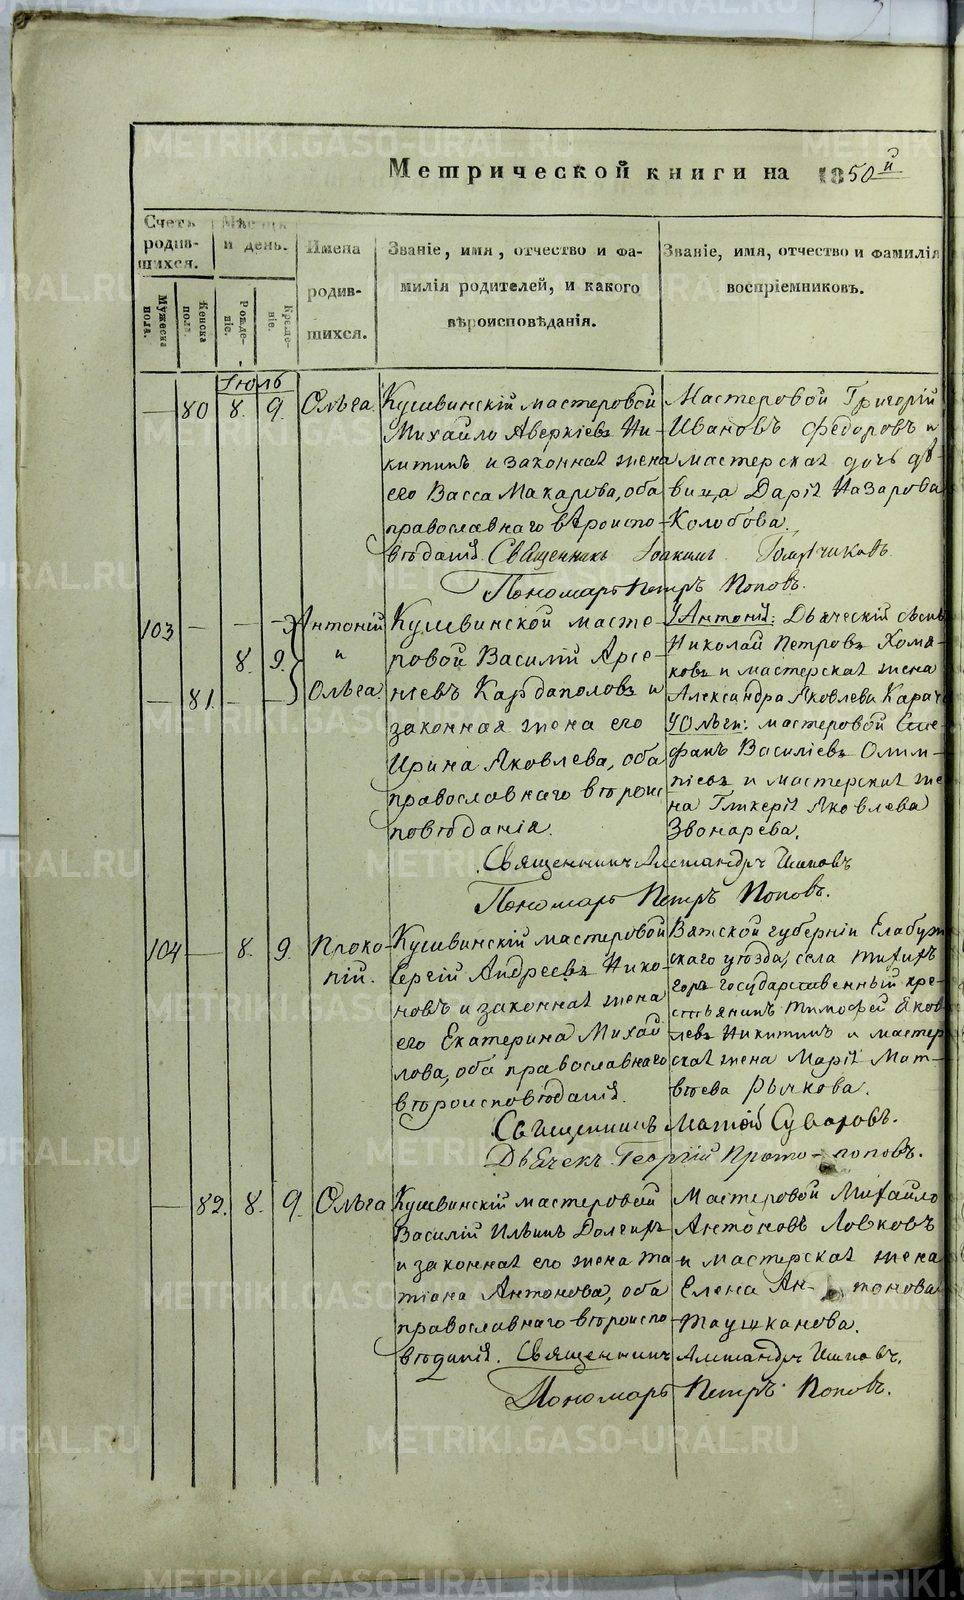 Метрической книги на 1850й
Счетъ родив-шихся.
Мѣсяцъ и день.
Имена родив-шихся.
Званіе, имя, отчество и фа-
милія родителей, и какого
вѣроисповѣданія.
Званіе, имя, отчество и фамилія
воспріемниковъ.
Мужеска пола.
Женска пола.
Рожде-ніе.
Креще-ніе.
Іюль
80 8. 9. Ольга.
Кушвинскій мастеровой
Михайло Аверкіевъ Ни-
китинъ и законная жена
его Васса Макарова, оба
православнаго вѣроиспо-
вѣданія.
Мастеровой Григорій
Ивановъ Федоровъ и
мастерская дочь дѣ-
вица Дарія Назарова
Колобова.
Священникъ Іоакимъ
Пономарь Петръ Поповъ.
103 81. 8. 9. Антоній и Ольга
Кушвинской масте-
ровой Василій Арсе-
ніевъ Кардаполовъ и
законная жена его
Ирина Яковлева, оба
православнаго вѣроис-
повѣданія.
У Антонія: Дьяческій сынъ
Николай Петровъ Хомя-
ковъ и мастерская жена
Александра Яковлева
У Ольги: мастеровой Сте-
фанъ Василіевъ Олим-
піевъ и мастерская же
на Гликерія Яковлева
Звонарева.
Священникъ Александръ
Пономарь Петръ Поповъ.
104 8. 9. Проко-
пій.
Кушвинскій мастеровой
Сергій Андреевъ Нико-
новъ и законная жена
его Екатерина Михай
лова, оба православнаго
вѣроисповѣданія.
Вятской губерніи Елабуж
скаго уѣзда, села
горъ государственный кре-
стьянинъ Тимофей Яков
левъ Никитинъ и мастер
ская жена Марія Мат-
вѣева Рычкова.
Священникъ Матѳій Суворовъ.
Дьячекъ Георгій Прото-поповъ.
82. 8. 9. Ольга
Кушвинскій мастеровой
Василій Ильинъ
и законная его жена Та
тіана Антонова, оба
православнаго вѣроиспо-
вѣданія.
Мастеровой Михайло
Антоновъ Ловковъ
и мастерская жена
Елена Ан-тонова
Таушканова.
Священникъ Александръ
Пономарь Петръ Поповъ.
METRIKI.GASO-URAL.RU